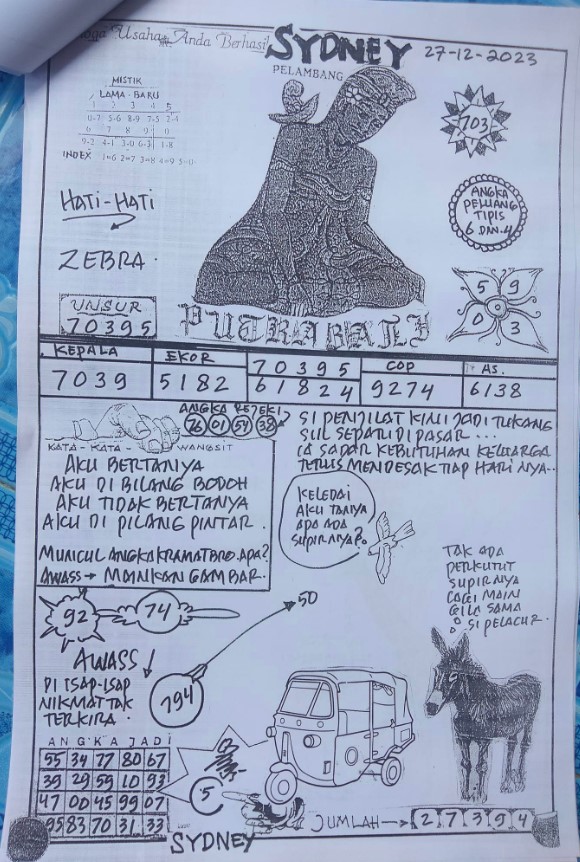 Usaha Anda Berhasil
SYDNEY
27-12-2023
PELAMBANG
MISTIK
LAMA - BARU
1 2 3 4 5
0-7 5-6 8-9 7-5 2-4
6 7 8 9 0
9-2 4-1 3-0 6-3 1-8
INDEX 1=6 2=7 3=8 4=9 5=0
703
HATI-HATI
ANGKA
PELUANG
TIPIS
6 DAN 4
ZEBRA.
5 9
0 3
UNSUR
70395
PUTRA BALI
KEPALA
7039
EKOR
5182
70395
61824
COP
9274
AS.
6138
ANGKA REJEKI
76 01 54 38
KATA - KATA - WANGSIT
AKU BERTANYA
AKU DI BILANG BODOH
AKU TIDAK BERTANYA
AKU DI PILANG PINTAR.
MUNCUL ANGKA KRAMAT BRO. APA?
AWASS → MAINKAN GAMBAR.
SI PENJILAT KINI JADI TUKANG
SUL SEPATU DI PASAR...
KEBUTUHAN KELUARGA
TERUS MENDESAK TIAP HARI NYA..
KELEDAI
AKU TANYA
APA ADA
SUPIRNYA?
TAK ADA
PERKUTUT
SUPIRNYA
LAGI MAIN
GILA SAMA
SI PELACUR.
92
74
50
AWASS
DI ISAP-ISAP
NIKMAT TAK
TERKIRA.
794
ANGKA JADI
55 34 77 80 67
39 29 59 10 93
47 00 45 99 07
95 83 70 31 33
5
JUMLAH → 2 7 3 9 4
SYDNEY